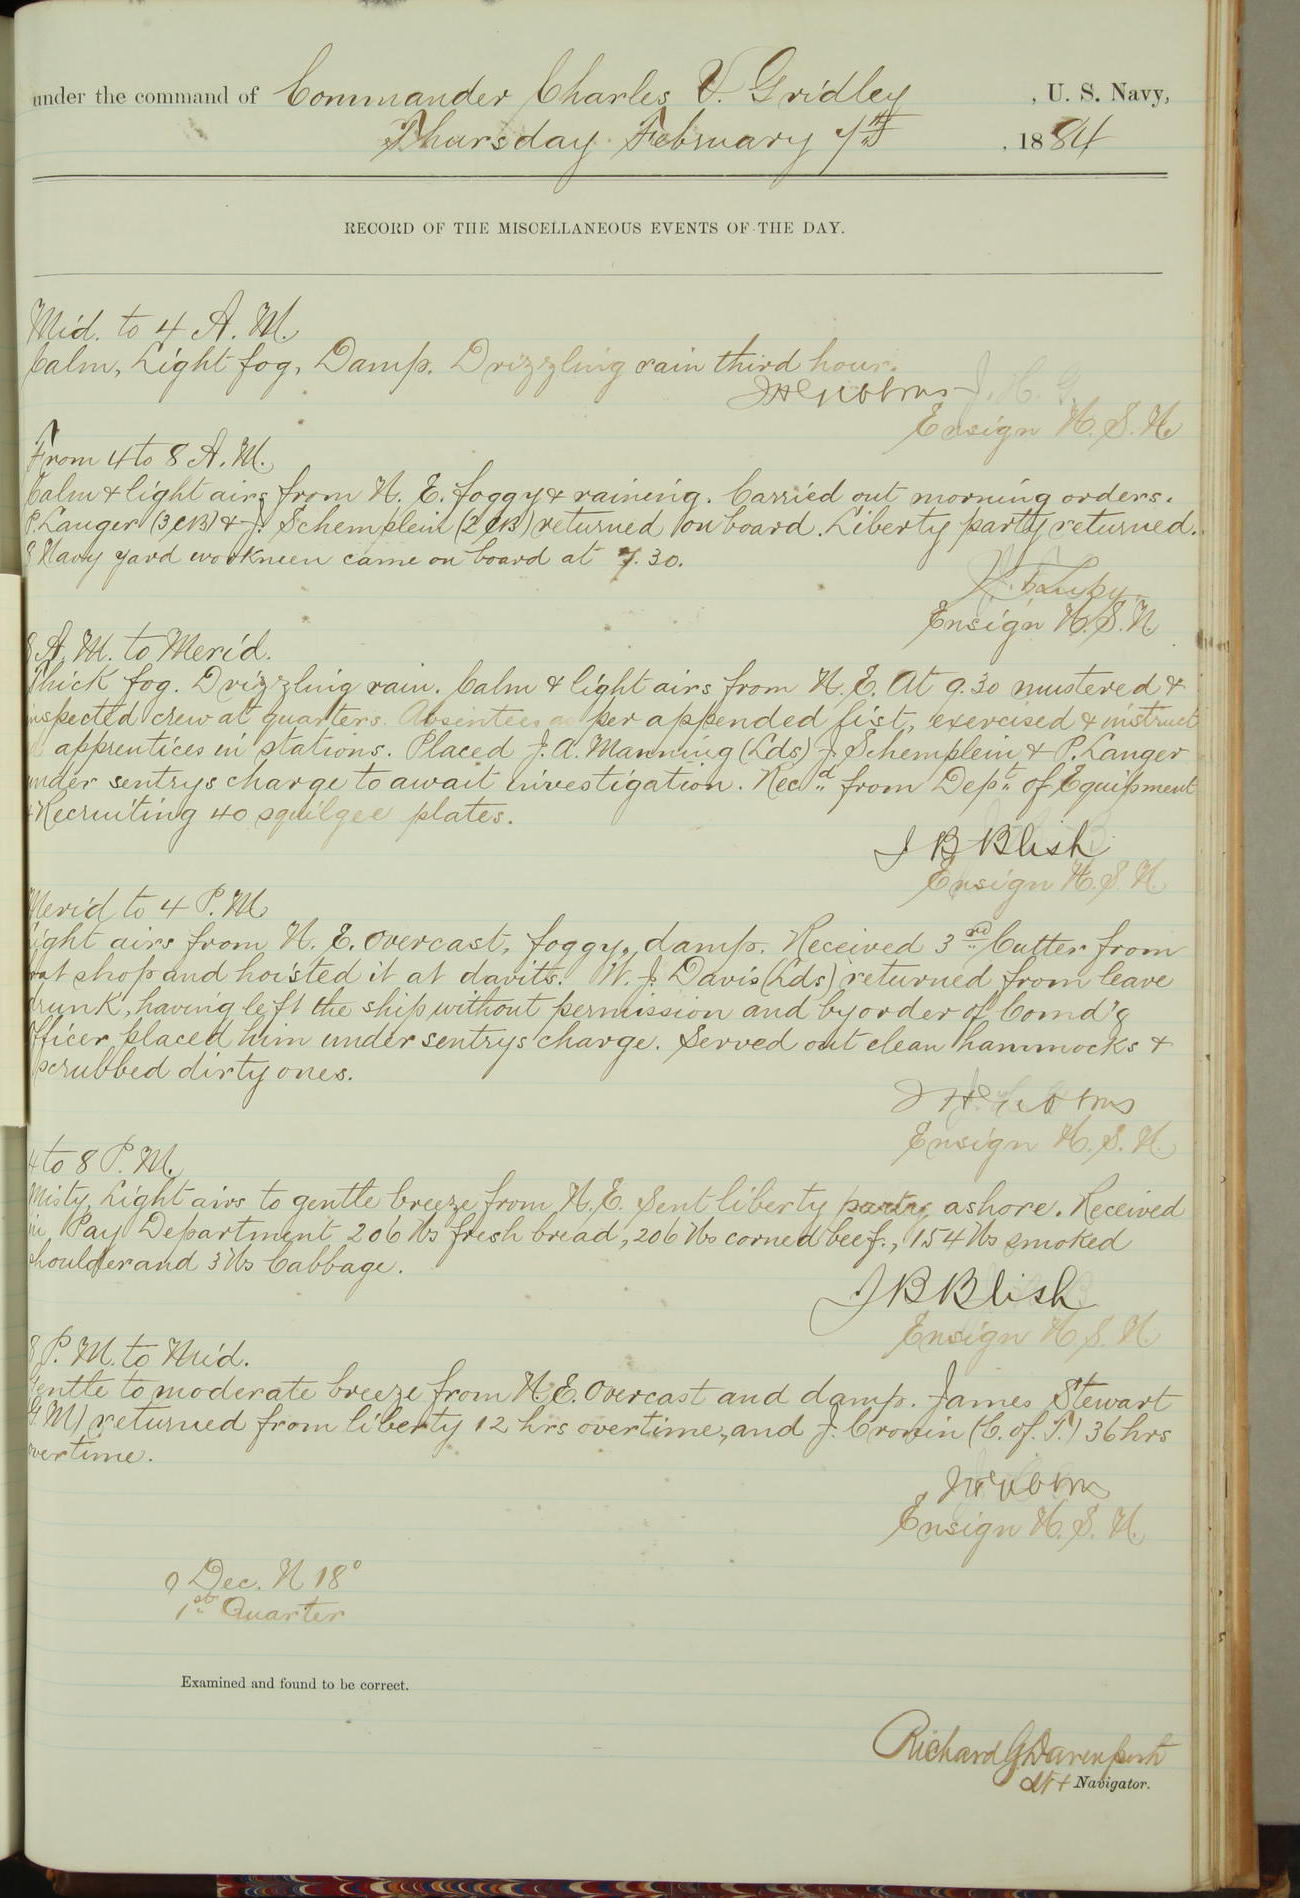 under the command of Commander Charles V. Gridley, U. S. Navy,
Thursday February 7th, 1884
RECORD OF THE MISCELLANEOUS EVENTS OF THE DAY.
Mid. to 4 A. M.
Calm, Light fog, Damp. Drizzling rain third hour.
Ensign U. S. N.
From 4 to 8 A. M.
Calm & light airs from N. E. foggy & raining. Carried out morning orders.
P. Langer (3 CB) & J. Schemplein (2 CB) returned on board. Liberty party returned.
8 Navy yard workmen came on board at 7.30.
Ensign U. S. N.
8 A. M. to Merid.
Thick fog. Drizzling rain. Calm & light airs from N. E. At 9.30 mustered &
inspected crew at quarters. Absentees as per appended list, exercised & instruct
apprentices in stations. Placed J. A. Manning (Lds) J. Schemplein & P. Langer
under sentrys charge to await investigation. Recd from Dept of Equipment
& Recruiting 40 squilgee plates.
J B Blish
Ensign U. S. N.
Merid to 4 P. M.
Light airs from N. E. overcast, foggy, damp. Received 3rd Cutter from
boat shop and hoisted it at davits. W. J. Davis (Lds) returned from leave
drunk, having left the ship without permission and by order of Comd'g
Officer placed him under sentrys charge. Served out clean hammocks &
scrubbed dirty ones.
Ensign U. S. N.
4 to 8 P. M.
Misty, Light airs to gentle breeze from N. E. Sent liberty party ashore. Received
in Pay Department 206 lbs fresh bread, 206 lbs corned beef, 154 lbs smoked
shoulder and 3 lbs Cabbage.
J B Blish
Ensign U. S. N.
8 P. M. to Mid.
Gentle to moderate breeze from N. E. Overcast and damp. James Stewart
(G. M) returned from liberty 12 hrs overtime, and J. Cronin (C. of. T.) 36 hrs
overtime.
Ensign U. S. N.
Dec. N 18°
1st Quarter
Examined and found to be correct.
Richard G Davenport
Navigator.